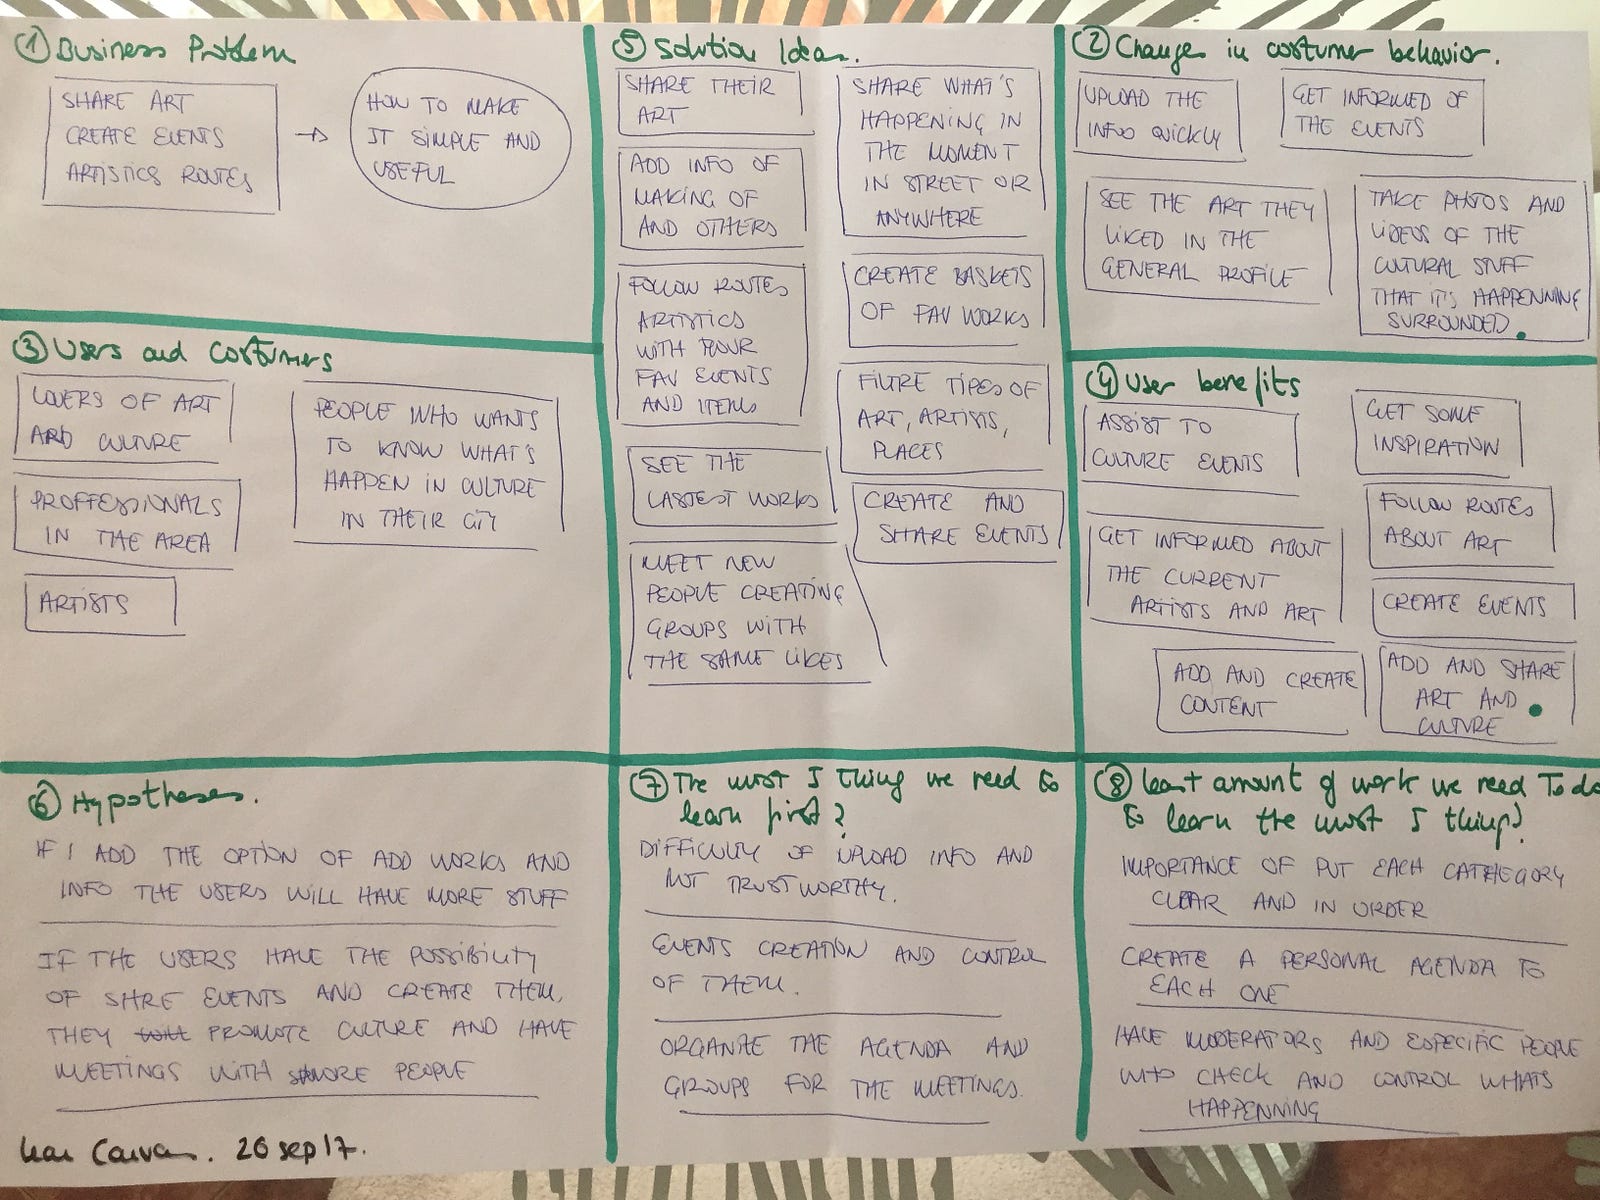 ① Business Problem
SHARE ART
CREATE EVENTS
ARTISTICS ROUTES
→
HOW TO MAKE
IT SIMPLE AND
USEFUL
⑤ Solution Ideas.
SHARE THEIR
ART
ADD INFO OF
MAKING OF
AND OTHERS
FOLLOW ROUTES
ARTISTICS
WITH YOUR
FAV EVENTS
AND ITEMS
SEE THE
LASTEST WORKS
MEET NEW
PEOPLE CREATING
GROUPS WITH
THE SAME LIKES
SHARE WHAT'S
HAPPENING IN
THE MOMENT
IN STREET OR
ANYWHERE
CREATE BASKETS
OF FAV WORKS
FILTRE TIPES OF
ART, ARTISTS,
PLACES
CREATE AND
SHARE EVENTS
② Changes in costumer behavior.
UPLOAD THE
INFO QUICKLY
GET INFORMED OF
THE EVENTS
SEE THE ART THEY
LIKED IN THE
GENERAL PROFILE
TAKE PHOTOS AND
VIDEOS OF THE
CULTURAL STUFF
THAT IT'S HAPPENNING
SURROUNDED.
③ Users and costumers
LOVERS OF ART
AND CULTURE
PROFFESSIONALS
IN THE AREA
ARTISTS
PEOPLE WHO WANTS
TO KNOW WHAT'S
HAPPEN IN CULTURE
IN THEIR CITY
④ User benefits
ASSIST TO
CULTURE EVENTS
GET SOME
INSPIRATION
FOLLOW ROUTES
ABOUT ART
GET INFORMED ABOUT
THE CURRENT
ARTISTS AND ART
CREATE EVENTS
ADD AND CREATE
CONTENT
ADD AND SHARE
ART AND
CULTURE
⑥ Hypotheses.
IF I ADD THE OPTION OF ADD WORKS AND
INFO THE USERS WILL HAVE MORE STUFF
IF THE USERS HAVE THE POSSIBILITY
OF SHRE EVENTS AND CREATE THEM,
THEY will PROMOTE CULTURE AND HAVE
MEETINGS WITH MORE PEOPLE
⑦ The most I thing we need to
learn first?
DIFFICULTY OF UPLOAD INFO AND
NOT TRUSTWORTHY.
EVENTS CREATION AND CONTROL
OF THEM.
ORGANIZE THE AGENDA AND
GROUPS FOR THE MEETINGS.
⑧ least amount of work we need To do
to learn the most I thing?
IMPORTANCE OF PUT EACH CATHEGORY
CLEAR AND IN ORDER
CREATE A PERSONAL AGENDA TO
EACH ONE
HAVE MODERATORS AND ESPECIFIC PEOPLE
WHO CHECK AND CONTROL WHATS
HAPPENNING
26 sep 17.